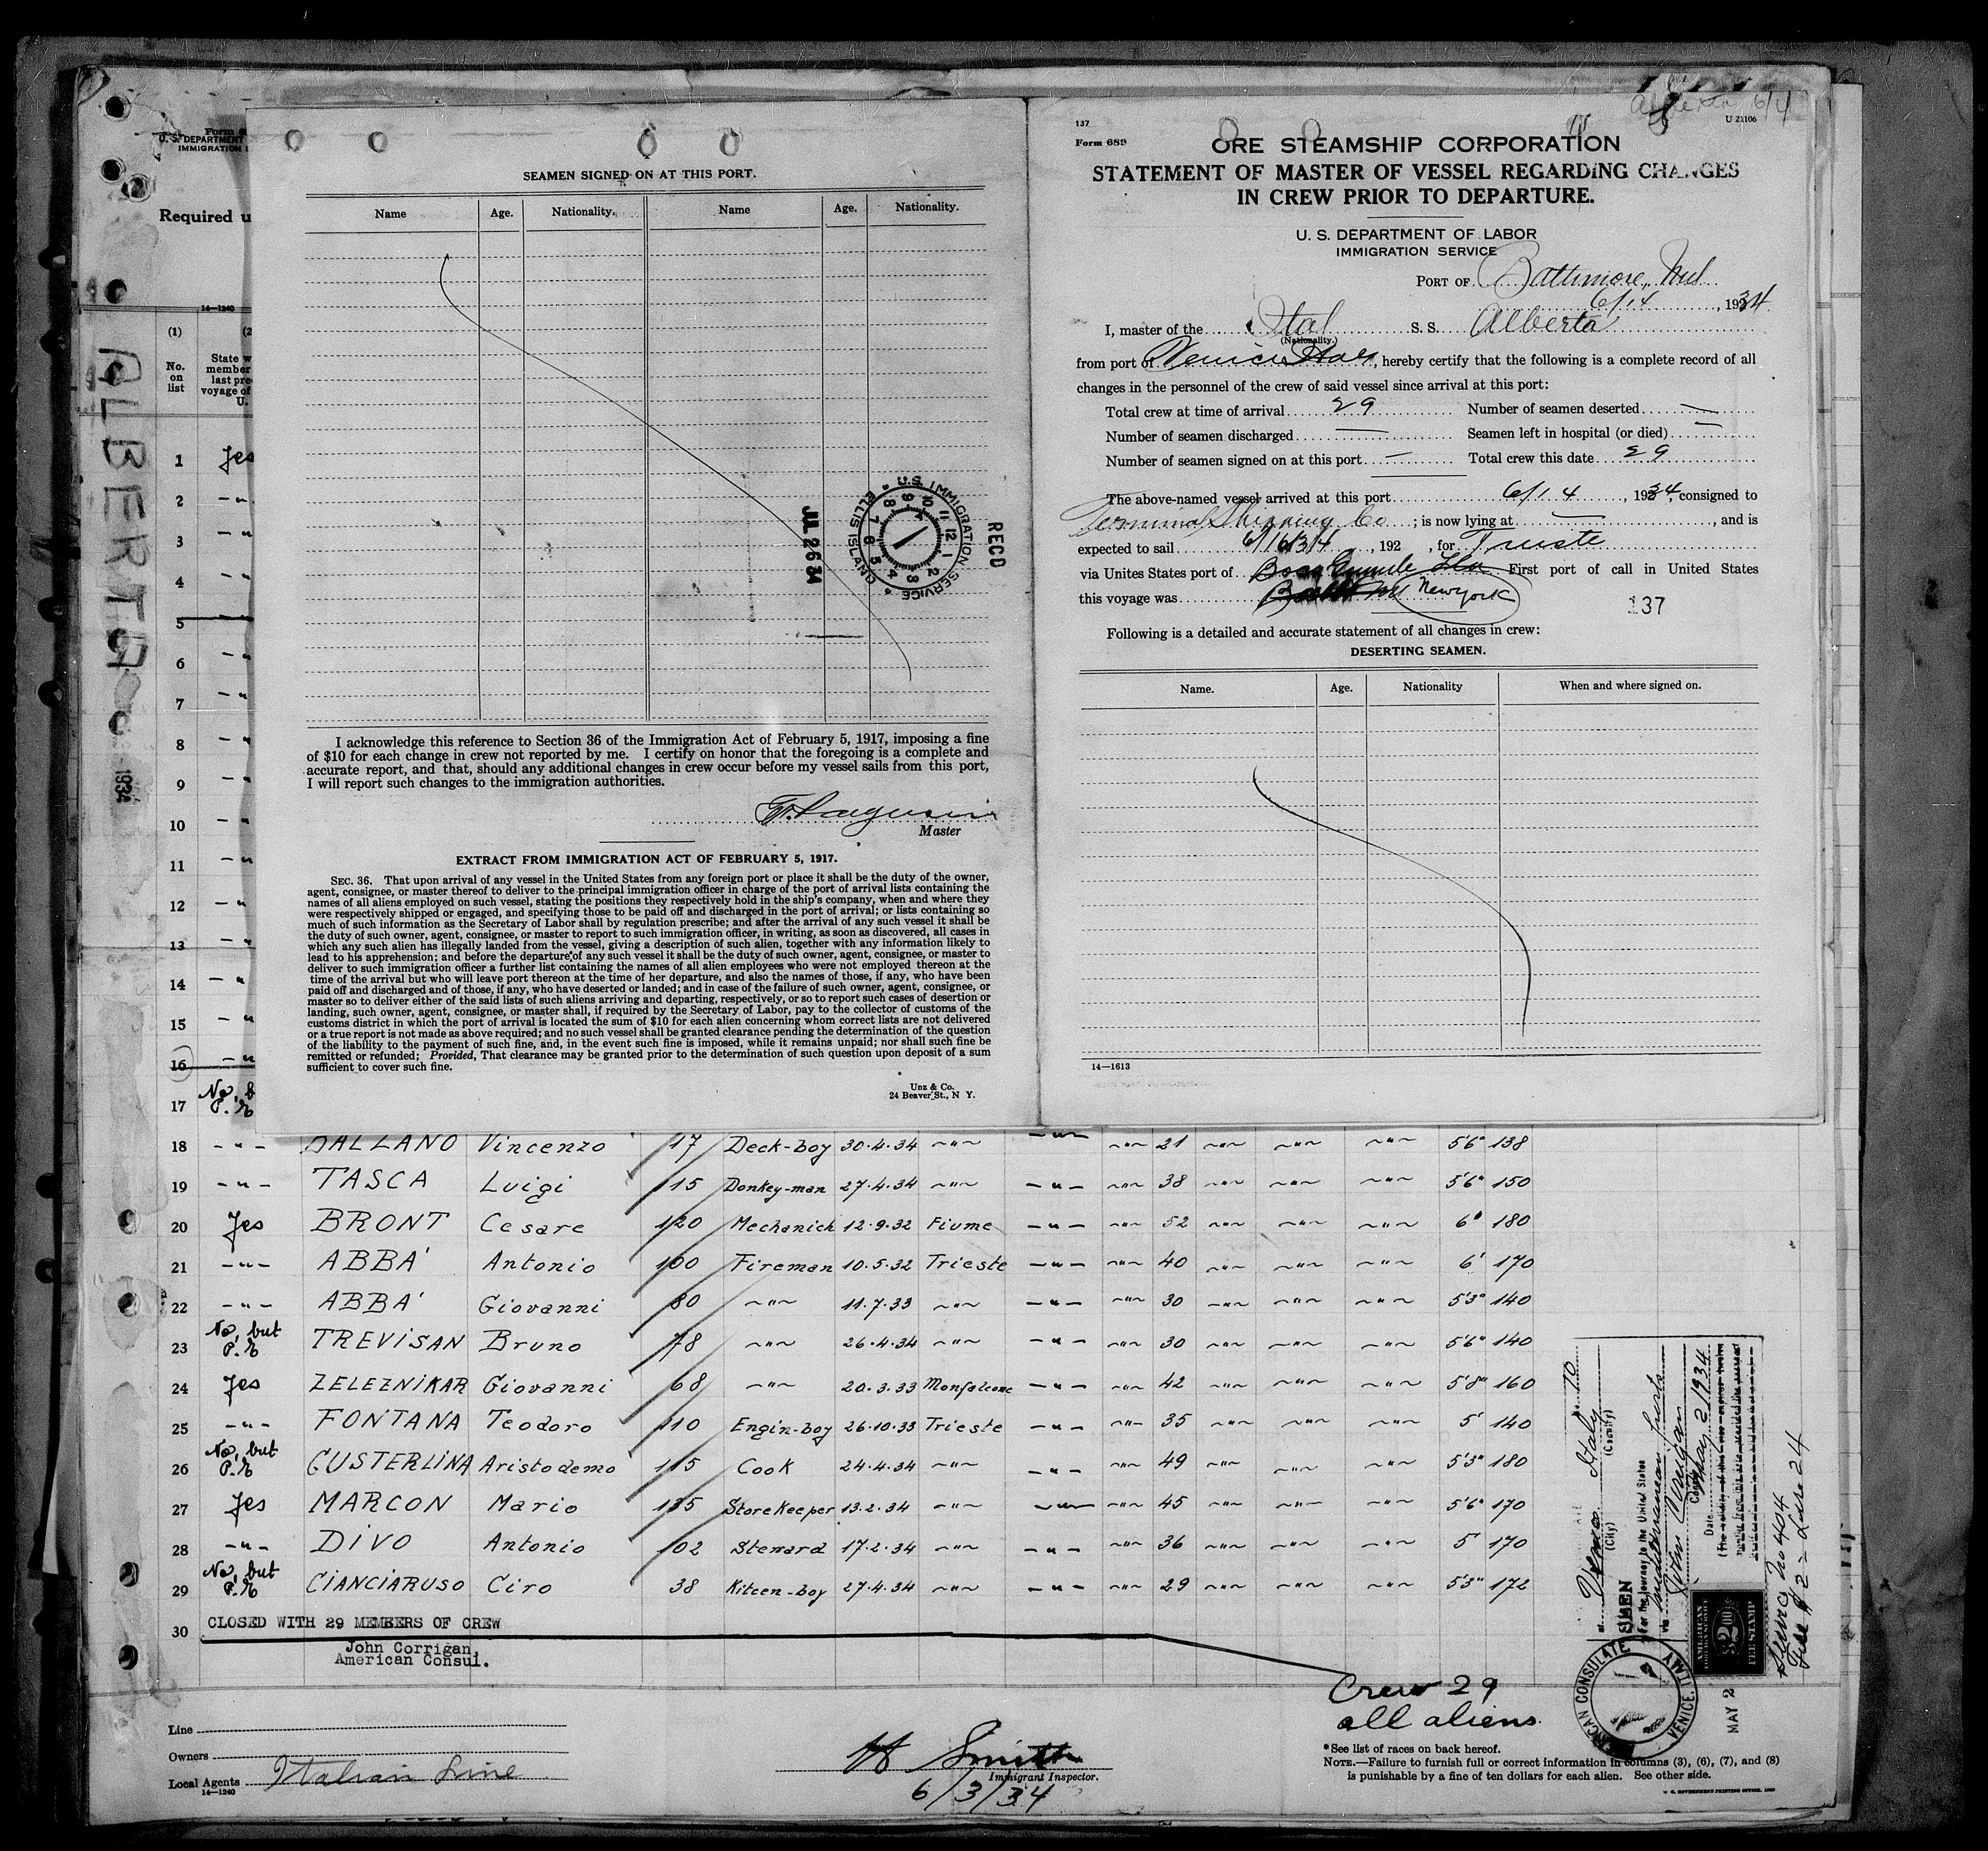 Form 6
U. S. DEPARTMENT
IMMIGRATION
Required u
14—1240
(1)
No.
on
list
State w
member
last pre
voyage of
U.
ALBERTA
1934
1 Jes
2 -"-
3 -"
4 -"
5
6 -"
7 -"
8 -"
9 -"
10 -"
11 -"
12 -"
13 -"
14 -"
15 -"
16 -"
17 No, b
P. R
SEAMEN SIGNED ON AT THIS PORT.
Name Age. Nationality. Name Age. Nationality.
U.S. IMMIGRATION SERVICE ELLIS ISLAND
JUL 26 34
RECD
I acknowledge this reference to Section 36 of the Immigration Act of February 5, 1917, imposing a fine
of $10 for each change in crew not reported by me. I certify on honor that the foregoing is a complete and
accurate report, and that, should any additional changes in crew occur before my vessel sails from this port,
I will report such changes to the immigration authorities.
Master
EXTRACT FROM IMMIGRATION ACT OF FEBRUARY 5, 1917.
SEC. 36. That upon arrival of any vessel in the United States from any foreign port or place it shall be the duty of the owner,
agent, consignee, or master thereof to deliver to the principal immigration officer in charge of the port of arrival lists containing the
names of all aliens employed on such vessel, stating the positions they respectively hold in the ship's company, when and where they
were respectively shipped or engaged, and specifying those to be paid off and discharged in the port of arrival; or lists containing so
much of such information as the Secretary of Labor shall by regulation prescribe; and after the arrival of any such vessel it shall be
the duty of such owner, agent, consignee, or master to report to such immigration officer, in writing, as soon as discovered, all cases in
which any such alien has illegally landed from the vessel, giving a description of such alien, together with any information likely to
lead to his apprehension; and before the departure of any such vessel it shall be the duty of such owner, agent, consignee, or master to
deliver to such immigration officer a further list containing the names of all alien employees who were not employed thereon at the
time of the arrival but who will leave port thereon at the time of her departure, and also the names of those, if any, who have been
paid off and discharged and of those, if any, who have deserted or landed; and in case of the failure of such owner, agent, consignee, or
master so to deliver either of the said lists of such aliens arriving and departing, respectively, or so to report such cases of desertion or
landing, such owner, agent, consignee, or master shall, if required by the Secretary of Labor, pay to the collector of customs of the
customs district in which the port of arrival is located the sum of $10 for each alien concerning whom correct lists are not delivered
or a true report is not made as above required; and no such vessel shall be granted clearance pending the determination of the question
of the liability to the payment of such fine, and, in the event such fine is imposed, while it remains unpaid; nor shall such fine be
remitted or refunded; Provided, That clearance may be granted prior to the determination of such question upon deposit of a sum
sufficient to cover such fine.
Unz & Co.
24 Beaver St., N Y.
137
Form 689
6/4
U 21106
ORE STEAMSHIP CORPORATION
STATEMENT OF MASTER OF VESSEL REGARDING CHANGES
IN CREW PRIOR TO DEPARTURE.
U. S. DEPARTMENT OF LABOR
IMMIGRATION SERVICE
PORT OF Baltimore, Md
6/14, 1934
I, master of the Ital S. S. Alberta
(Nationality.)
from port of Venice, hereby certify that the following is a complete record of all
changes in the personnel of the crew of said vessel since arrival at this port:
Total crew at time of arrival 29 Number of seamen deserted —
Number of seamen discharged — Seamen left in hospital (or died) —
Number of seamen signed on at this port — Total crew this date 29
The above-named vessel arrived at this port 6/14, 1934, consigned to
Terminal Shipping Co; is now lying at —, and is
expected to sail 6/16/34, 192 , for Trieste
via Unites States port of Boca Grande Fla First port of call in United States
this voyage was New York
137
Following is a detailed and accurate statement of all changes in crew:
DESERTING SEAMEN.
Name. Age. Nationality When and where signed on.
14—1613
18 -"- BALLANO Vincenzo 17 Deck-boy 30.4.34 -"- -"- -"- 21 -"- -"- -"- 5'6" 138
19 -"- TASCA Luigi 115 Donkey-man 27.4.34 -"- -"- -"- 38 -"- -"- -"- 5'6" 150
20 Jes BRONT Cesare 120 Mechanich 12.9.32 Fiume -"- -"- 52 -"- -"- -"- 6' 180
21 -"- ABBA' Antonio 100 Fireman 10.5.32 Trieste -"- -"- 40 -"- -"- -"- 6' 170
22 -"- ABBA' Giovanni 80 -"- 11.7.33 -"- -"- -"- 30 -"- -"- -"- 5'3" 140
23 No, but P.R TREVISAN Bruno 78 -"- 26.4.34 -"- -"- -"- 30 -"- -"- -"- 5'6" 140
24 Jes ZELEZNIKAR Giovanni 68 -"- 20.3.33 Monfalcone -"- -"- 42 -"- -"- -"- 5'8" 160
25 -"- FONTANA Teodoro 110 Engin-boy 26.10.33 Trieste -"- -"- 35 -"- -"- -"- 5' 140
26 No, but P.R CUSTERLINA Aristodemo 115 Cook 24.4.34 -"- -"- -"- 49 -"- -"- -"- 5'3" 180
27 Jes MARCON Mario 135 Store Keeper 13.2.34 -"- -"- -"- 45 -"- -"- -"- 5'6" 170
28 -"- DIVO Antonio 102 Steward 17.2.34 -"- -"- -"- 36 -"- -"- -"- 5' 170
29 No, but P.R CIANCIARUSO Ciro 38 Kitcen-boy 27.4.34 -"- -"- -"- 29 -"- -"- -"- 5'3" 172
30 CLOSED WITH 29 MEMBERS OF CREW
John Corrigan,
American Consul.
Crew 29
all aliens.
Line
Owners
Local Agents Italian Line
14—1240
H Smith
Immigrant Inspector.
6/3/34
*See list of races on back hereof.
NOTE.—Failure to furnish full or correct information in columns (3), (6), (7), and (8)
is punishable by a fine of ten dollars for each alien. See other side.
SEEN
at Venice Italy
(City) (Country)
For the journey to the United States
via mediterranean ports
John Corrigan
Date May 2 1934
AMERICAN
FOREIGN SERVICE
$2.00
FEE STAMP
Service No 404
Fee $2 =
AMERICAN CONSULATE
VENICE, ITALY
MAY 2